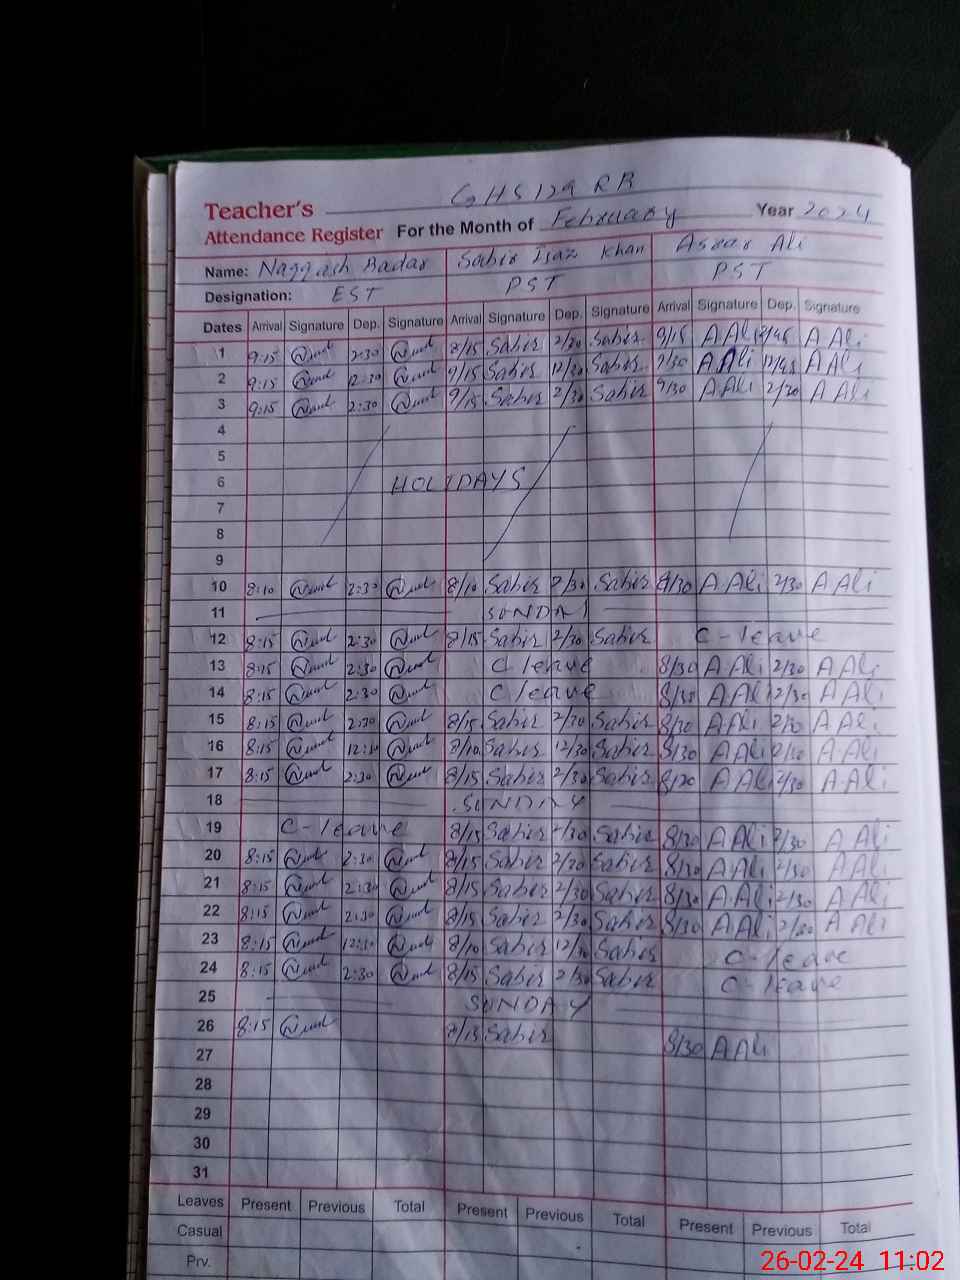 GHS 129 RB
Teacher's
Attendance Register For the Month of February Year 2024
Name: Naqqash Badar Sabir Ijaz Khan Asrar Ali
Designation: EST PST PST
Dates Arrival Signature Dep. Signature Arrival Signature Dep. Signature Arrival Signature Dep. Signature
1 9:15 2:30 8/15 Sabir 2/30 Sabir 9/15 A Ali A Ali
2 9:15 12:30 9/15 Sabir 12/30 Sabir 9/30 A Ali 12/45 A Ali
3 9:15 2:30 9/15 Sabir 2/30 Sabir 9/30 A Ali 2/30 A Ali
4
5
6 HOLIDAYS
7
8
9
10 8:10 2:30 8/10 Sabir 2/30 Sabir 8/30 A Ali 2/30 A Ali
11 SUNDAY
12 8:15 2:30 8/15 Sabir 2/30 Sabir C-leave
13 8:15 2:30 C leave 8/30 A Ali 2/30 A Ali
14 8:15 2:30 C leave 8/30 A Ali 2/30 A Ali
15 8:15 2:30 8/15 Sabir 2/30 Sabir 8/30 A Ali 2/30 A Ali
16 8:15 12:30 8/10 Sabir 12/30 Sabir 8/30 A Ali A Ali
17 8:15 2:30 8/15 Sabir 2/30 Sabir 8/30 A Ali 2/30 A Ali
18 SUNDAY
19 C-leave 8/15 Sabir 2/30 Sabir 8/30 A Ali 2/30 A Ali
20 8:15 2:30 8/15 Sabir 2/30 Sabir 8/30 A Ali 2/30 A Ali
21 8:15 2:30 8/15 Sabir 2/30 Sabir 8/30 A Ali 2/30 A Ali
22 8:15 2:30 8/15 Sabir 2/30 Sabir 8/30 A Ali 2/30 A Ali
23 8:15 12:30 8/10 Sabir 12/30 Sabir C-leave
24 8:15 2:30 8/15 Sabir 2/30 Sabir C-leave
25 SUNDAY
26 8:15 8/15 Sabir 8/30 A Ali
27
28
29
30
31
Leaves Present Previous Total Present Previous Total Present Previous Total
Casual
Prv.
26-02-24 11:02